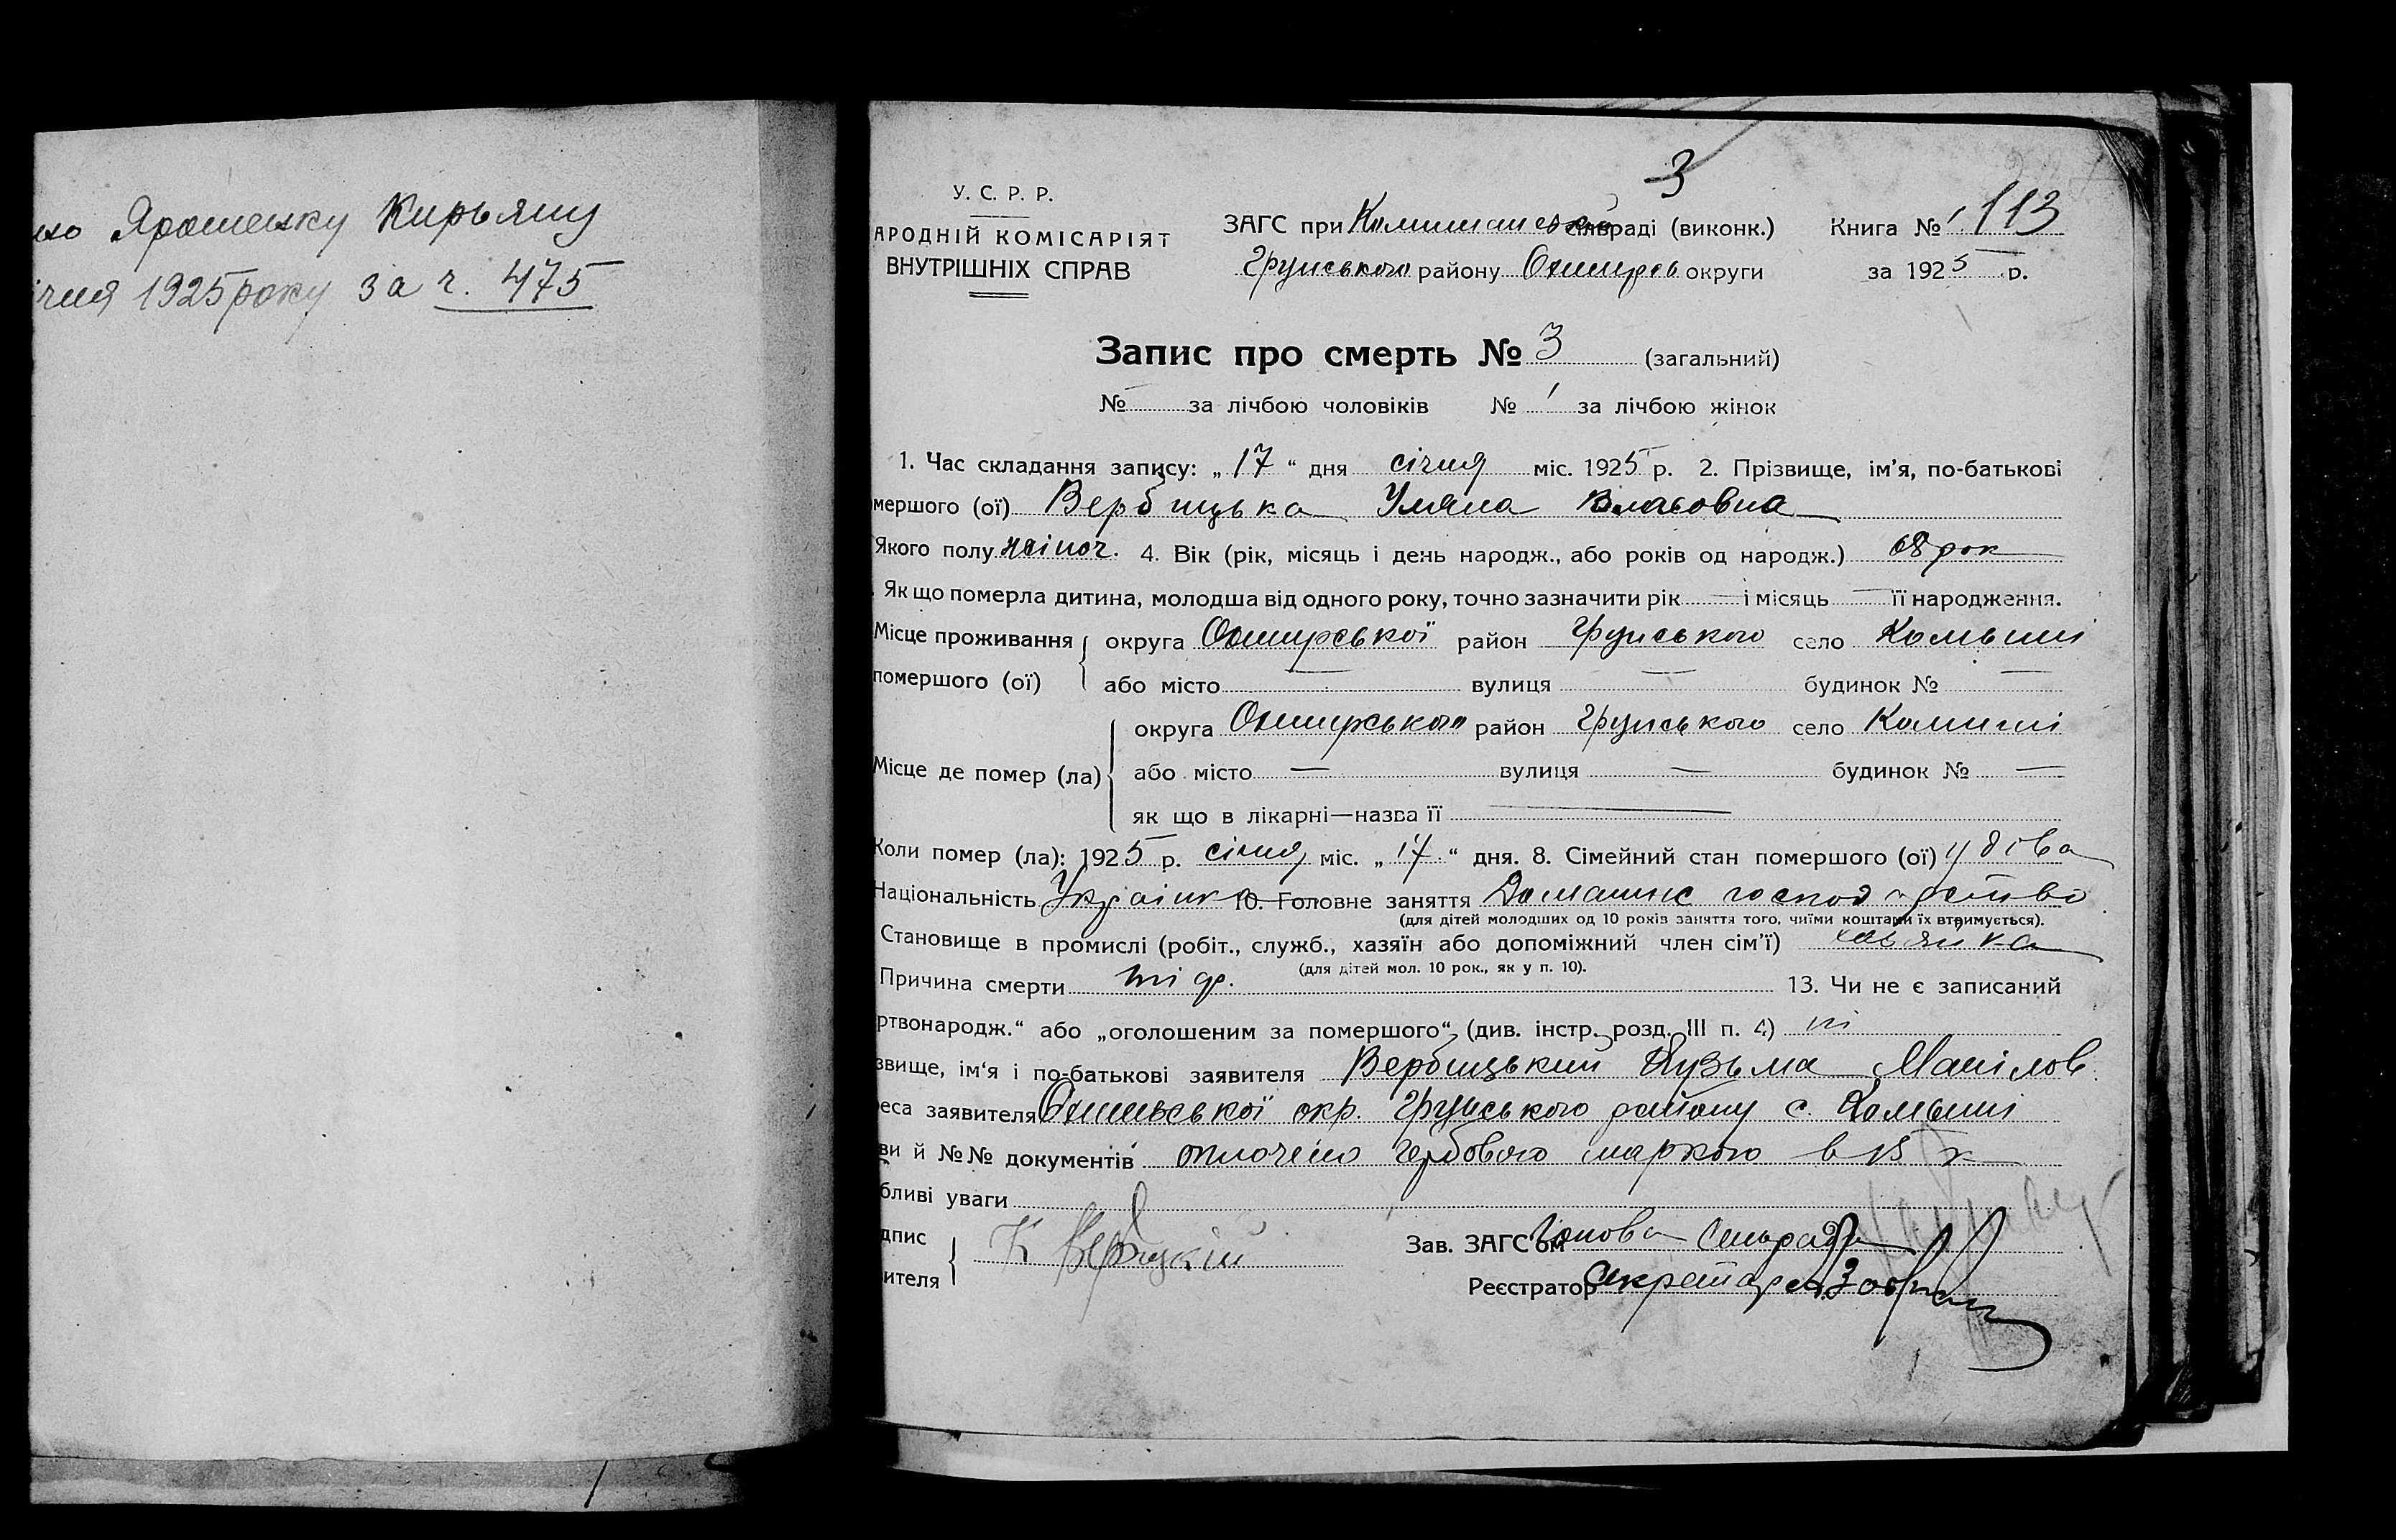 Ярошенку Кирьяну
1925 року за ч. 475
3
У. С. Р. Р.
АРОДНІЙ КОМІСАРІЯТ
ВНУТРІШНІХ СПРАВ
ЗАГС при Комишанській сільраді (виконк.)
Грунського району Охтирськ округи
Книга № 113
за 1925 р.
Запис про смерть № 3 (загальний)
№ — за лічбою чоловіків № 1 за лічбою жінок
1. Час складання запису: „ 17 “ дня січня міс. 1925 р. 2. Прізвище, ім’я, по-батькові
мершого (ої) Вербицька Уляна Власовна
Якого полу жіноч. 4. Вік (рік, місяць і день народж., або років од народж.) 68 рок
Як що померла дитина, молодша від одного року, точно зазначити рік — і місяць — її народження.
Місце проживання округа Охтирської район Грунського село Комыші
помершого (ої) або місто — вулиця — будинок № —
округа Охтирського район Грунського село Комиші
Місце де помер (ла) або місто — вулиця — будинок № —
як що в лікарні—назва її —
Коли помер (ла): 1925 р. січня міс. „ 17 “ дня. 8. Сімейний стан помершого (ої) удова
Національність Українка 10. Головне заняття Домашнє господарство
(для дітей молодших од 10 років заняття того, чиїми коштами їх втримується).
Становище в промислі (робіт., служб., хазяїн або допоміжний член сім’ї) хазяйка
(для дітей мол. 10 рок., як у п. 10).
Причина смерти тіф. 13. Чи не є записаний
ртвонародж.“ або „оголошеним за помершого“, (див. інстр. розд. III п. 4) ні
звище, ім‘я і по-батькові заявителя Вербицький Кузьма
еса заявителя Охтирської окр. Грунського району с. Комыші
ви й №№ документів оплочено гербовою маркою в 15 к
бливі уваги
дпис
вителя
К Вербицкій
Зав. ЗАГС‘ом Голова Сільради
Реєстратор Секретарь